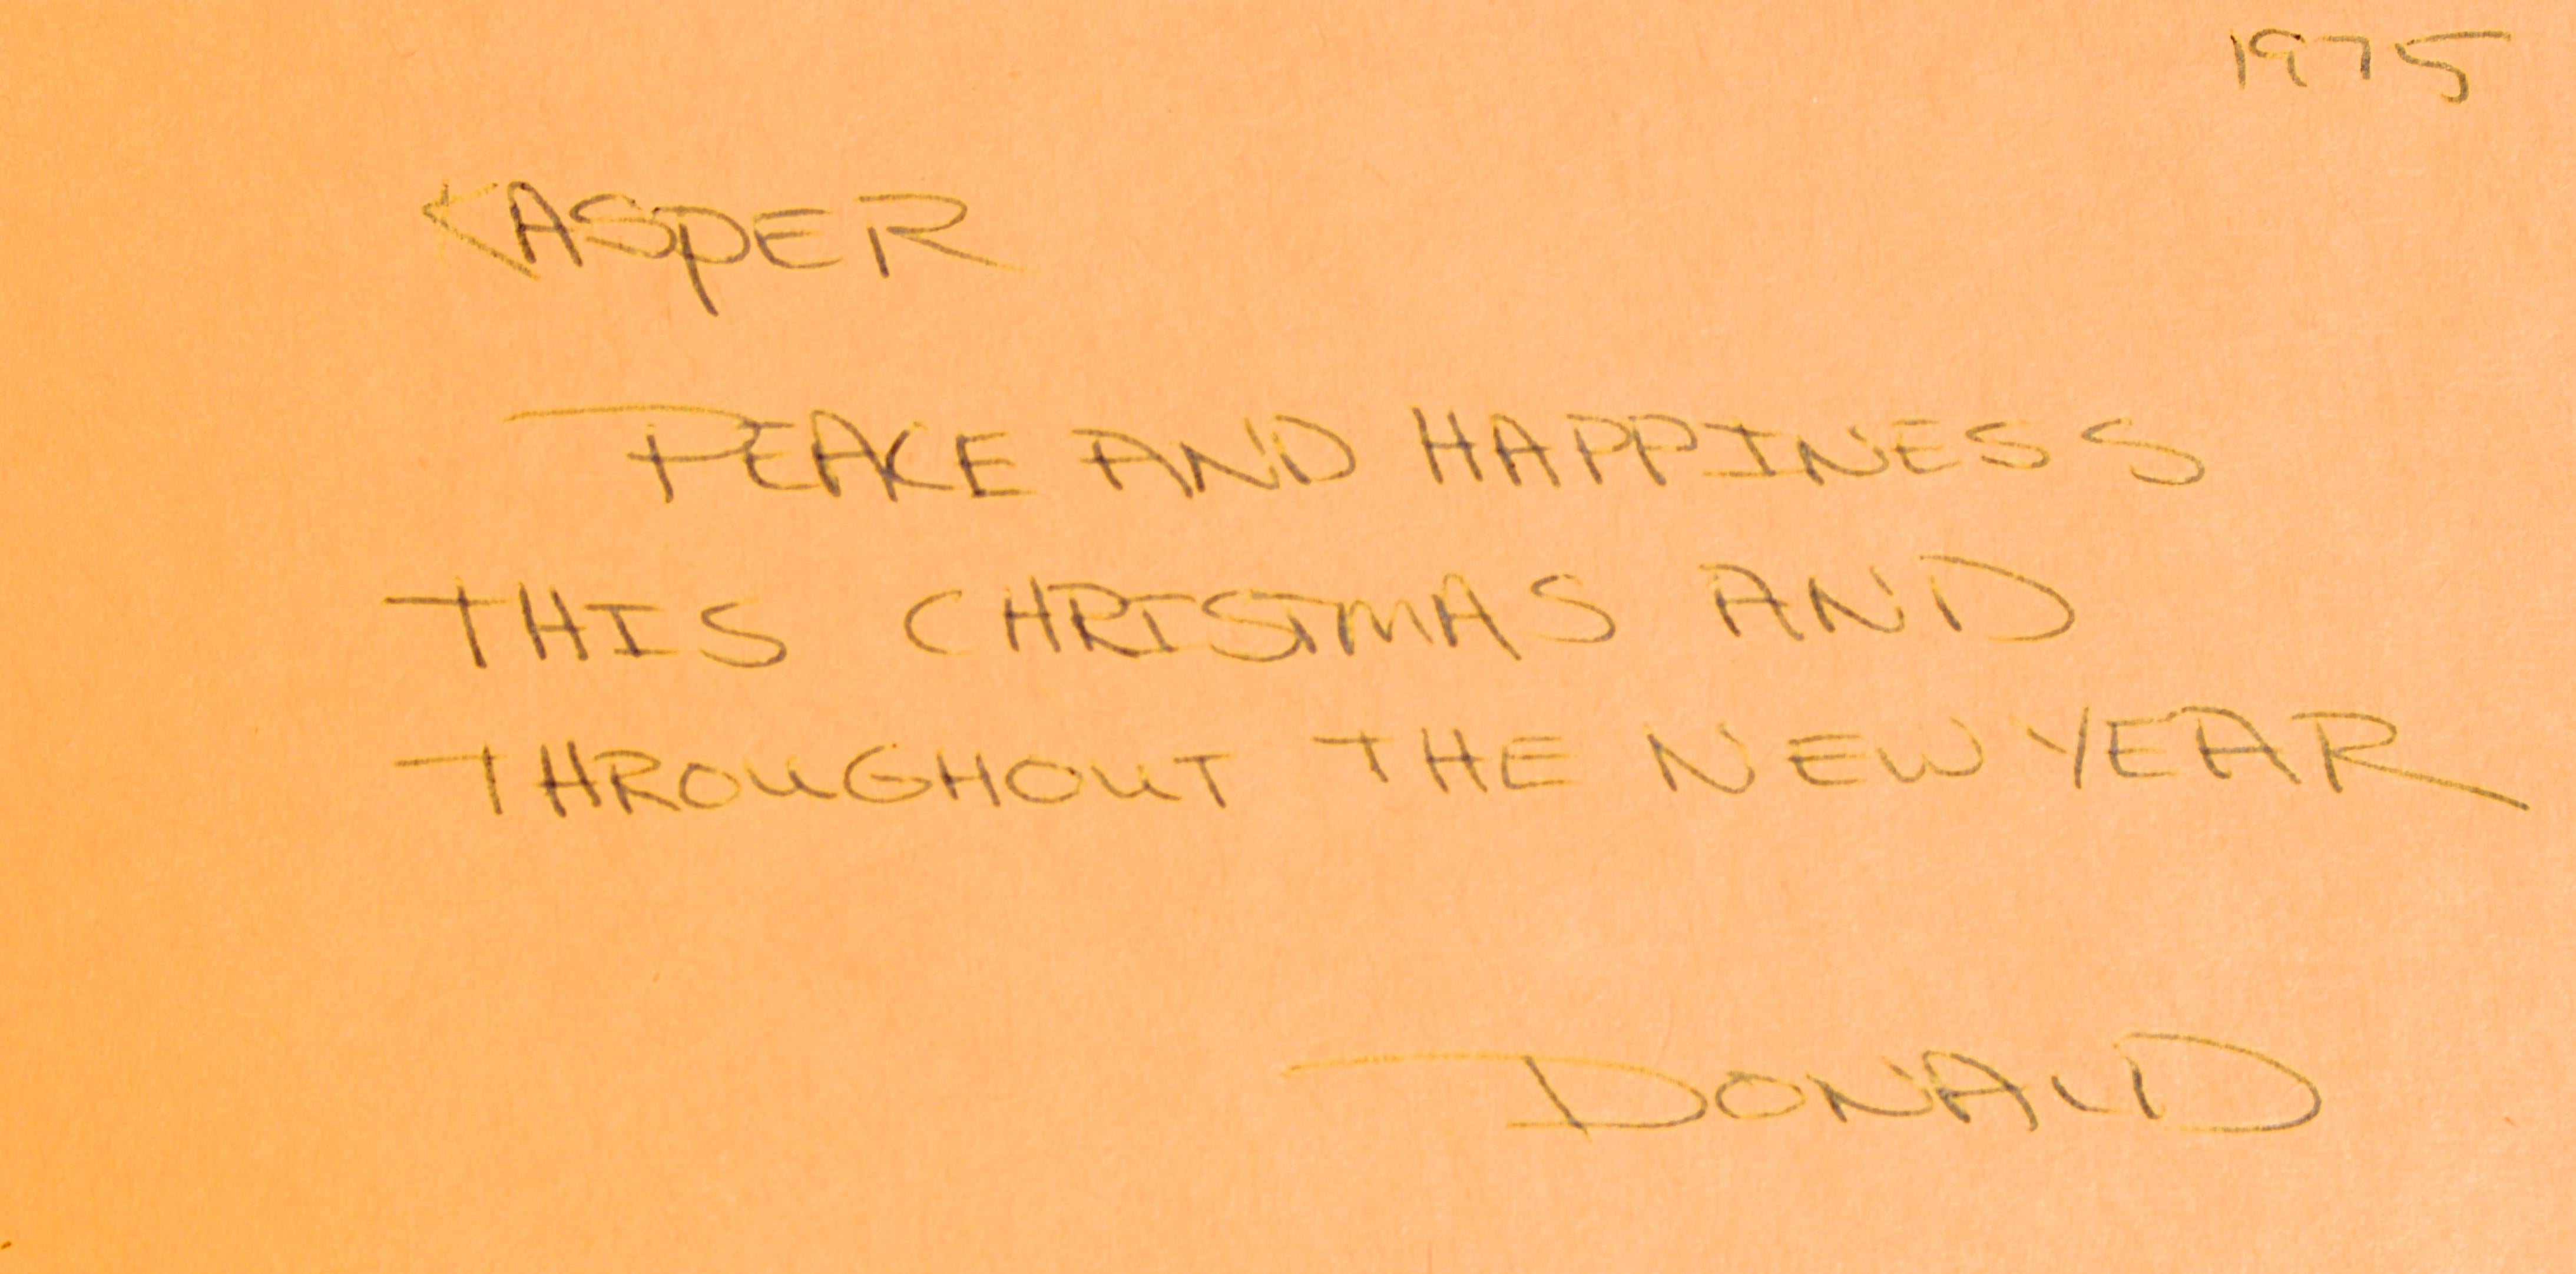 1975
KASPER
PEACE AND HAPPINESS
THIS CHRISTMAS AND
THROUGHOUT THE NEW YEAR
DONALD